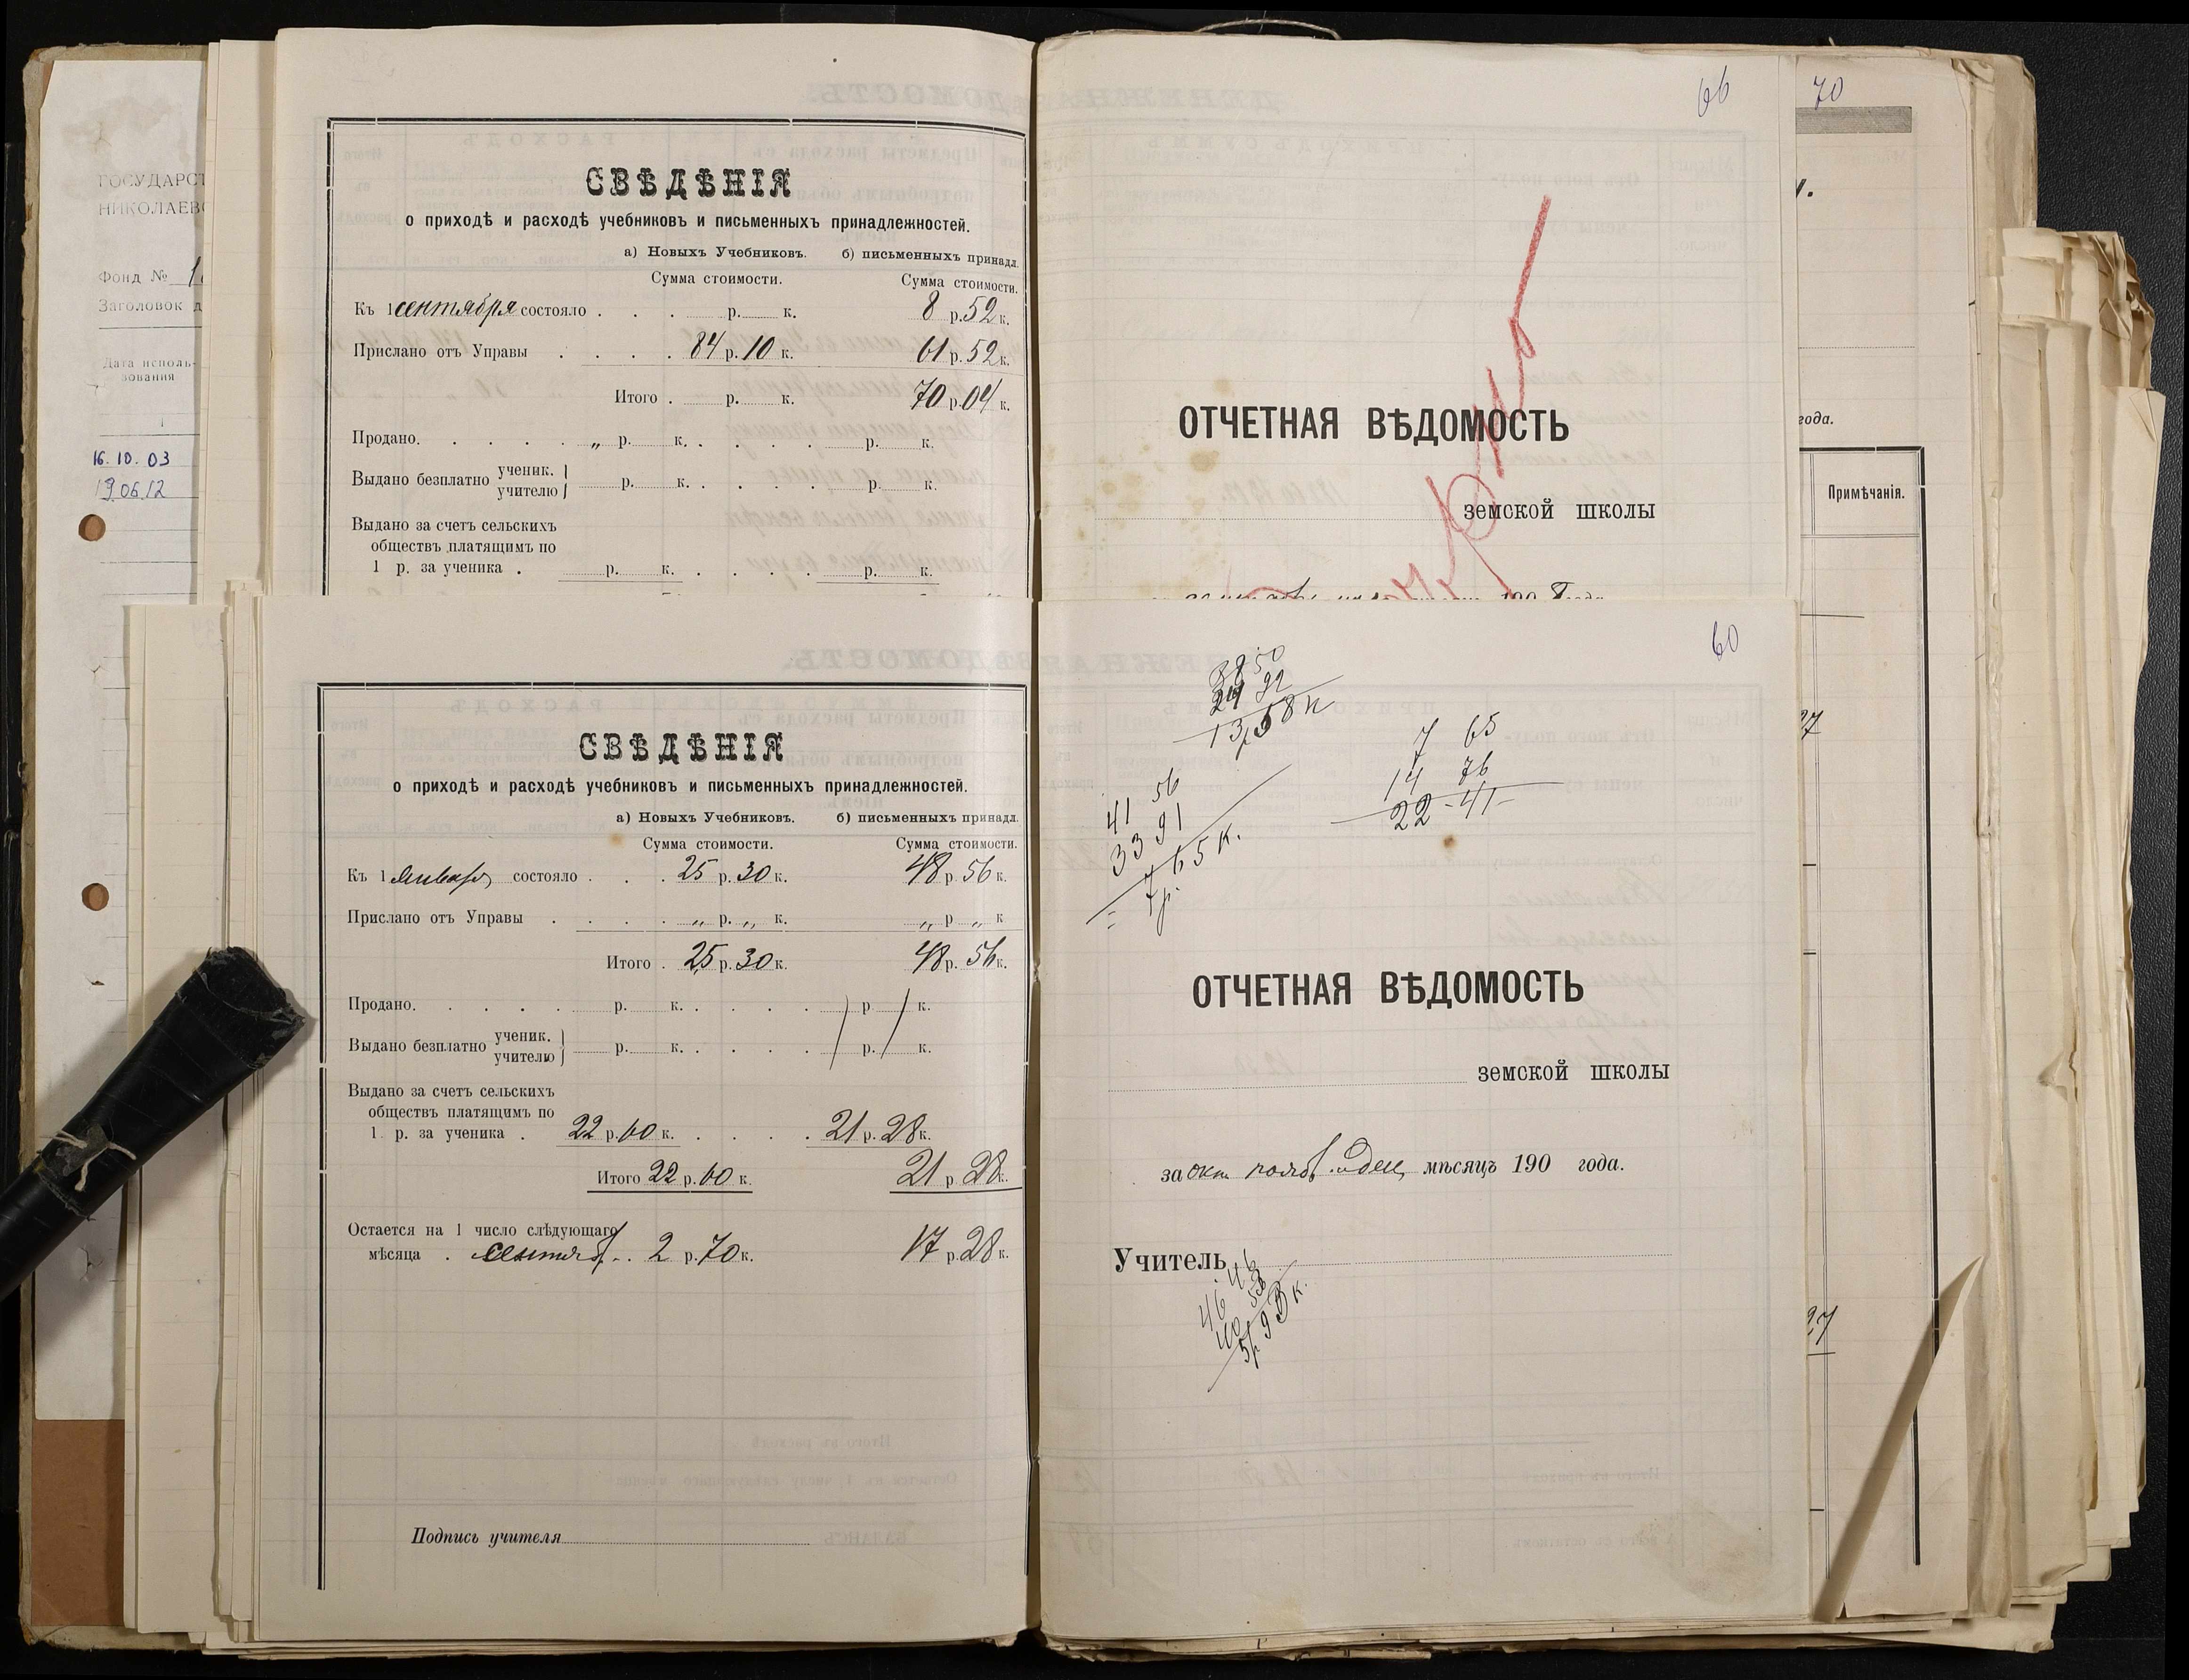 ГОСУДАРСТ
НИКОЛАЕВС
Фонд № 1
Заголовок д
Дата исполь-
зования
1
16.10.03
19.06.12
СВѢДѢНІЯ
о приходѣ и расходѣ учебниковъ и письменныхъ принадлежностей.
а) Новыхъ Учебниковъ. б) письменныхъ принадл.
Сумма стоимости. Сумма стоимости.
Къ 1 сентября состояло . . . р. к. 8 р. 52 к.
Прислано отъ Управы . . . . 84 р. 10 к. 61 р. 52 к.
Итого . р. к. 70 р. 04 к.
Продано. . . . . „ р. к. . . . . р. к.
Выдано безплатно ученик. учителю р. к. . . . . р. к.
Выдано за счет сельскихъ
обществъ платящимъ по
1 р. за ученика . р. к. . . . . р. к.
66
70
ОТЧЕТНАЯ ВѢДОМОСТЬ
земской школы
190 8 года
года.
Примѣчанія.
27
27
СВѢДѢНІЯ
о приходѣ и расходѣ учебниковъ и письменныхъ принадлежностей.
а) Новыхъ Учебниковъ. б) письменныхъ принадл.
Сумма стоимости. Сумма стоимости.
Къ 1 Январ состояло . . . 25 р. 30 к. 48 р. 56 к.
Прислано отъ Управы . . . . „ р. „ к. „ р „ к
Итого . 25 р. 30 к. 48 р. 56 к.
Продано. . . . . р. к. . . . . р к.
Выдано безплатно ученик. учителю р. к. . . . . р. к.
Выдано за счет сельскихъ
обществъ платящимъ по
1 р. за ученика . 22 р. 60 к. . . . . 21 р. 28 к.
Итого 22 р. 60 к. 21 р 28 к.
Остается на 1 число слѣдующаго
мѣсяца . сентяб . . 2 р. 70 к. 17 р. 28 к.
Подпись учителя
60
38 50
24 92
13 р 58 к
7 65
14 76
22 - 41 -
41 56
33 91
= 7 р. 65 к.
ОТЧЕТНАЯ ВѢДОМОСТЬ
земской школы
за окт нояб. и дец мѣсяцъ 190 года.
Учитель
46 46
40 53
5 р 93 к.